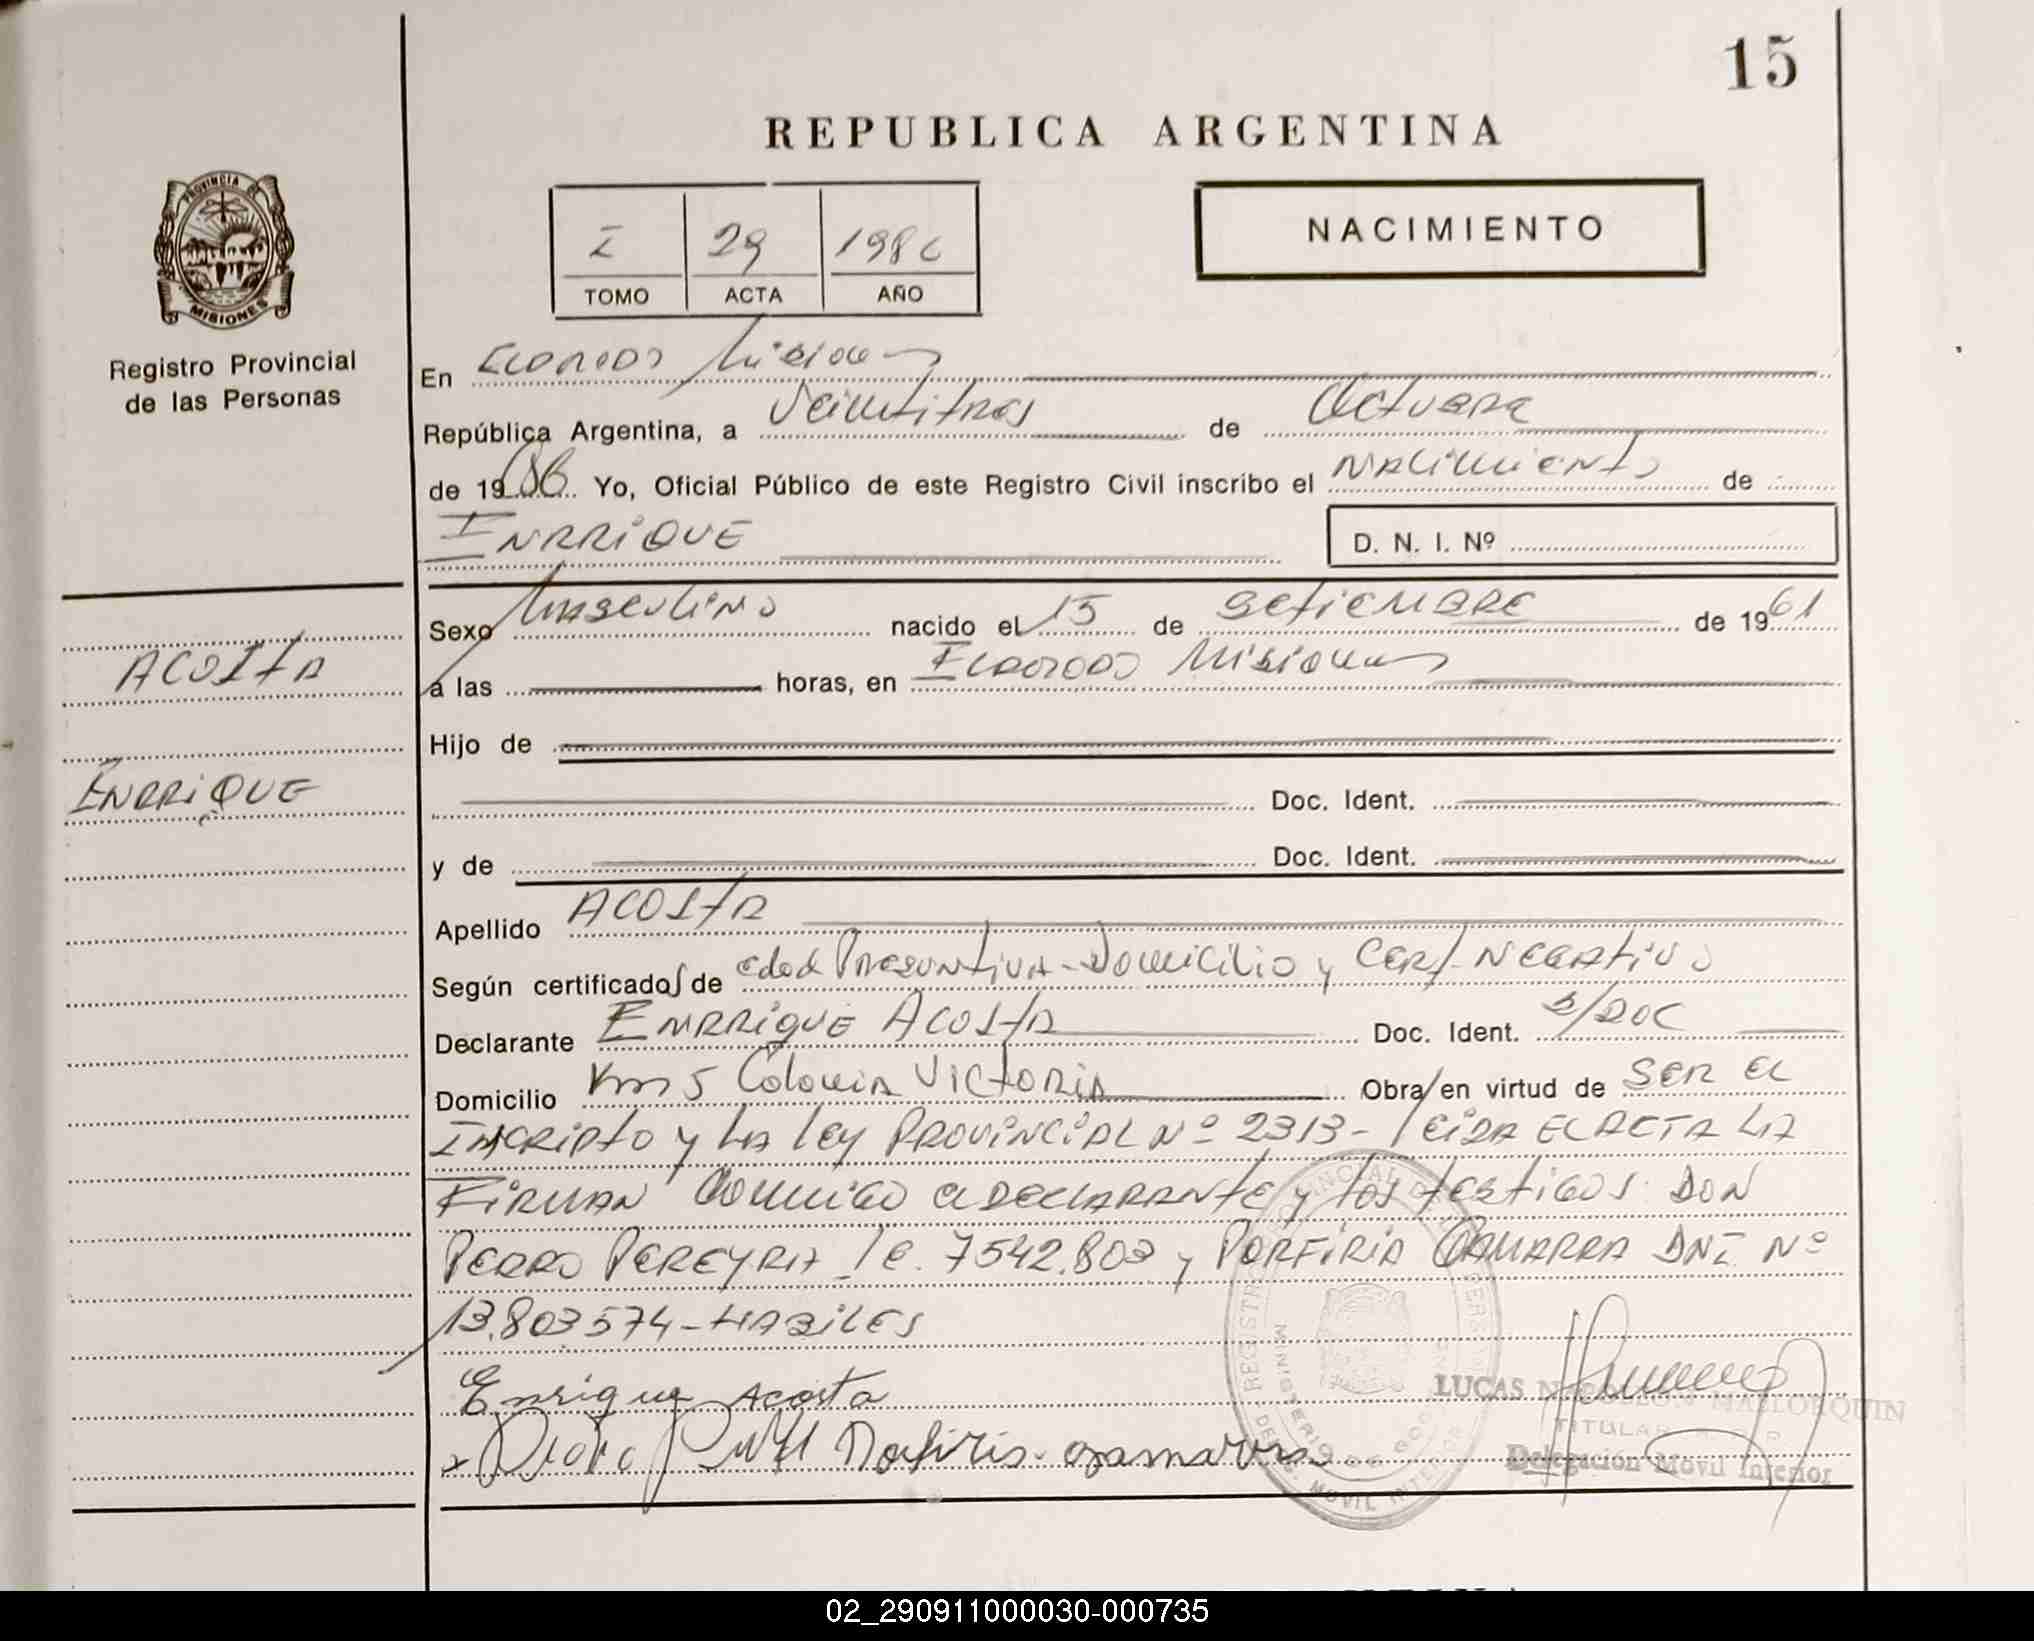 15
REPUBLICA ARGENTINA
PROVINCIA DE
MISIONES
I 29 1986
TOMO ACTA AÑO
NACIMIENTO
Registro Provincial
de las Personas
En ELDORADO Misiones
República Argentina, a Veintitres de Octubre
de 1986. Yo, Oficial Público de este Registro Civil inscribo el NACIMIENTO de
ENRRIQUE D. N. I. Nº
Sexo Masculino nacido el 15 de SETIEMBRE de 1961
ACOSTA
a las horas, en ELDORADO Misiones
Hijo de
ENRRIQUE
Doc. Ident.
y de Doc. Ident.
Apellido ACOSTA
Según certificados de edad Presuntiva - Domicilio y CERT. NEGATIVO
Declarante ENRRIQUE ACOSTA Doc. Ident. S/DOC
Domicilio Km 5 Colonia VICTORIA Obra/en virtud de SER EL
INSCRIPTO y LA Ley PROVINCIAL Nº 2313 - LEIDA EL ACTA LA
FIRMAN CONMIGO el DECLARANTE y los testigos DON
PEDRO PEREYRA l e. 7542.803 y PORFIRIA GAMARRA DNI Nº
13.803574 - HABILES
Enrique Acosta
LUCAS NAPOLEON MALLORQUIN
TITULAR
Delegación Movil Interior
REGISTRO PROVINCIAL DE LAS PERSONAS
MINISTERIO DE GOBIERNO
DELEG. MOVIL INTERIOR
02_290911000030-000735